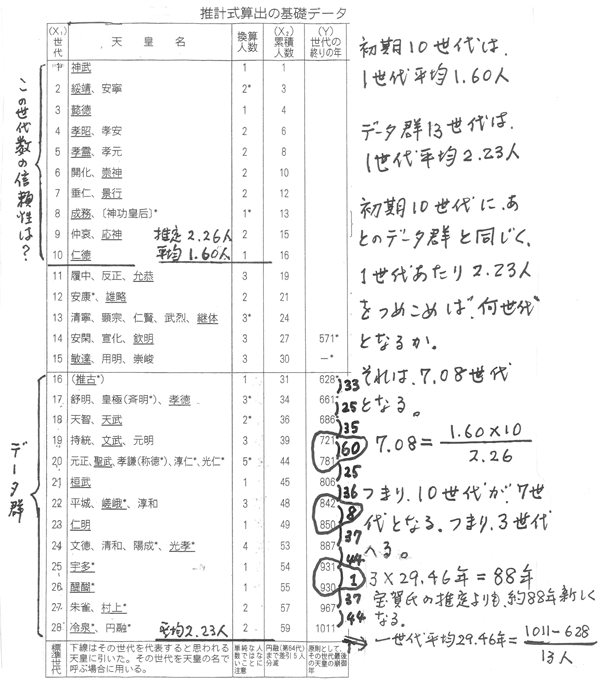 推計式算出の基礎データ
(X₁)世代 天皇名 換算人数 (X₂)累積人数 (Y)世代の終りの年
1 神武 1 1
2 綏靖、安寧 2* 3
3 懿徳 1 4
4 孝昭、孝安 2 6
5 孝霊、孝元 2 8
6 開化、崇神 2 10
7 垂仁、景行 2 12
8 成務、〔神功皇后〕* 1* 13
9 仲哀、応神 2 15
10 仁徳 1 16
推定2.26人
平均1.60人
11 履中、反正、允恭 3 19
12 安康*、雄略 2 21
13 清寧、顕宗、仁賢、武烈、継体 3* 24
14 安閑、宣化、欽明 3 27 571*
15 敏達、用明、崇峻 3 30 ―*
16 (推古*) 1 31 628
17 舒明、皇極(斉明*)、孝徳 3* 34 661
18 天智、天武 2* 36 686
19 持統、文武、元明 3 39 721
20 元正、聖武、孝謙(称徳*)、淳仁*、光仁* 5* 44 781
21 桓武 1 45 806
22 平城、嵯峨*、淳和 3 48 842
23 仁明 1 49 850
24 文徳、清和、陽成*、光孝* 4 53 887
25 宇多* 1 54 931
26 醍醐* 1 55 930
27 朱雀、村上* 2 57 967
28 冷泉*、円融* 2 59 1011
平均2.23人
標準世代 下線はその世代を代表すると思われる天皇に引いた。その世代を天皇の名で呼ぶ場合に用いる。
単純な人数ではないことに注意
円融(第64代)まで差引5人分減
原則として、その世代最後の天皇の崩御年
この世代数の信頼性は?
データ群
33
25
35
60
25
36
8
37
44
1
37
44
初期10世代は、
1世代平均1.60人
データ群13世代は、
1世代平均2.23人
初期10世代に、あ
とのデータ群と同じく、
1世代あたり2.23人
をつめこめば、何世代
となるか。
それは、7.08世代
となる。
7.08=1.60×10/2.26
つまり、10世代が、7世
代となる。つまり、3世代
へる。
3×29.46年=88年
宝賀氏の推定よりも、約88年新しく
なる。
⇒一世代平均29.46年=1011-628/13人